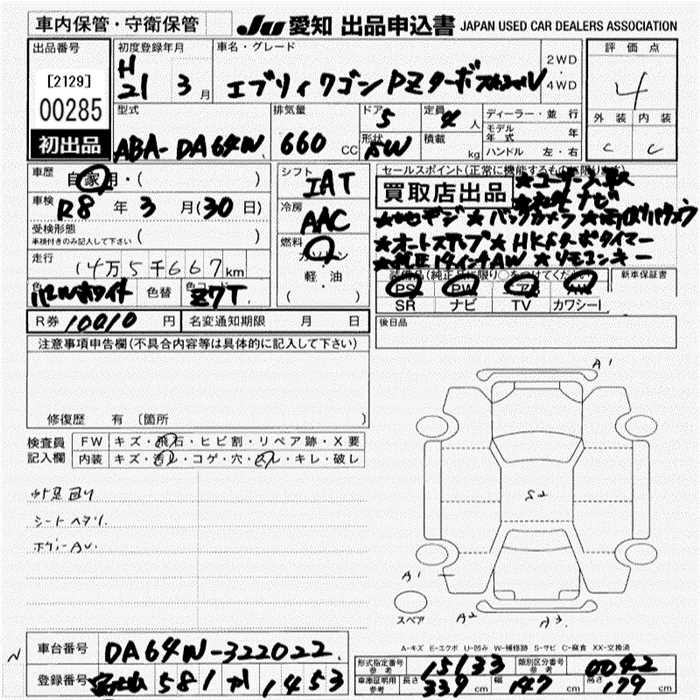 車内保管・守衛保管
JU 愛知 出品申込書 JAPAN USED CAR DEALERS ASSOCIATION
出品番号
[2129]
00285
初出品
初度登録年月
H
21 3 月
車名・グレード
エブリィワゴン PZターボスペシャル
2WD
・
4WD
評価点
4
外装 内装
C C
型式
ABA-DA64W
排気量
660 CC
ドア
5
定員
4 人
形状
5W
積載
kg
ディーラー・並行
モデル年式 年
ハンドル 左・右
車歴
自家用・( )
車検
R8 年 3 月(30 日)
受検形態
車検付きのみ記入して下さい ( )
走行
14万5千667km
色 パールホワイト 色替 色コード Z7T
シフト
IAT
冷房
AAC
燃料
ガソリン
軽・油
( )
セールスポイント(正常に機能するものに限ります)
買取店出品
★ユーザー買取
★社外ナビ
★地デジ★バックカメラ★両側パワスラ
★オートステップ★HKSターボタイマー
★純正14インチAW ★リモコンキー
装備品(純正品に限り○をつけてください)
PS PW
SR ナビ TV カワシート
新車保証書
R券 10010 円
名変通知期限 月 日
後日品
注意事項申告欄(不具合内容等は具体的に記入して下さい)
修復歴 有〔箇所 〕
検査員
記入欄
FW キズ・飛石・ヒビ割・リペア跡・X要
内装 キズ・汚レ・コゲ・穴・スレ・キレ・破レ
シートヘタリ.
ボディーAU.
A1
S2
A1
A2
A3
スペア
A-キズ E-エクボ U-凹み W-補修跡 S-サビ C-腐食 XX-交換済
車台番号
DA64W-322022
登録番号
581 1453
形式指定番号
参考
15133
類別区分番号
参考
0042
車庫証明用
参考
長さ 339 cm 幅 147 cm 高さ 179 cm